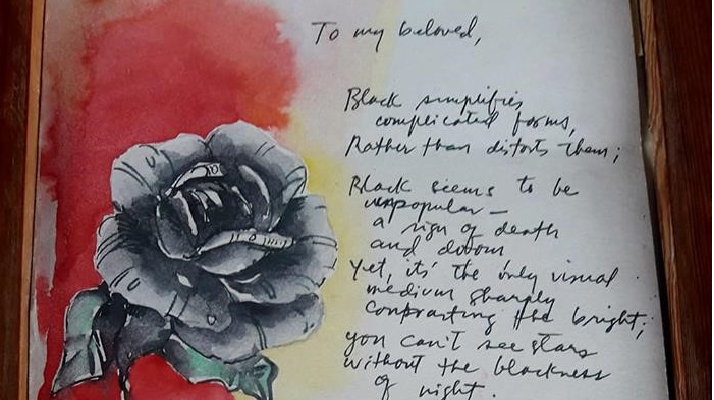 To my beloved,
Black simplifies
complicated forms,
Rather than distorts them;
Black seems to be
unpopular —
a sign of death
and
Yet, it's the only visual
medium sharply
contrasting the bright;
you can't see stars
without the blackness
of night.